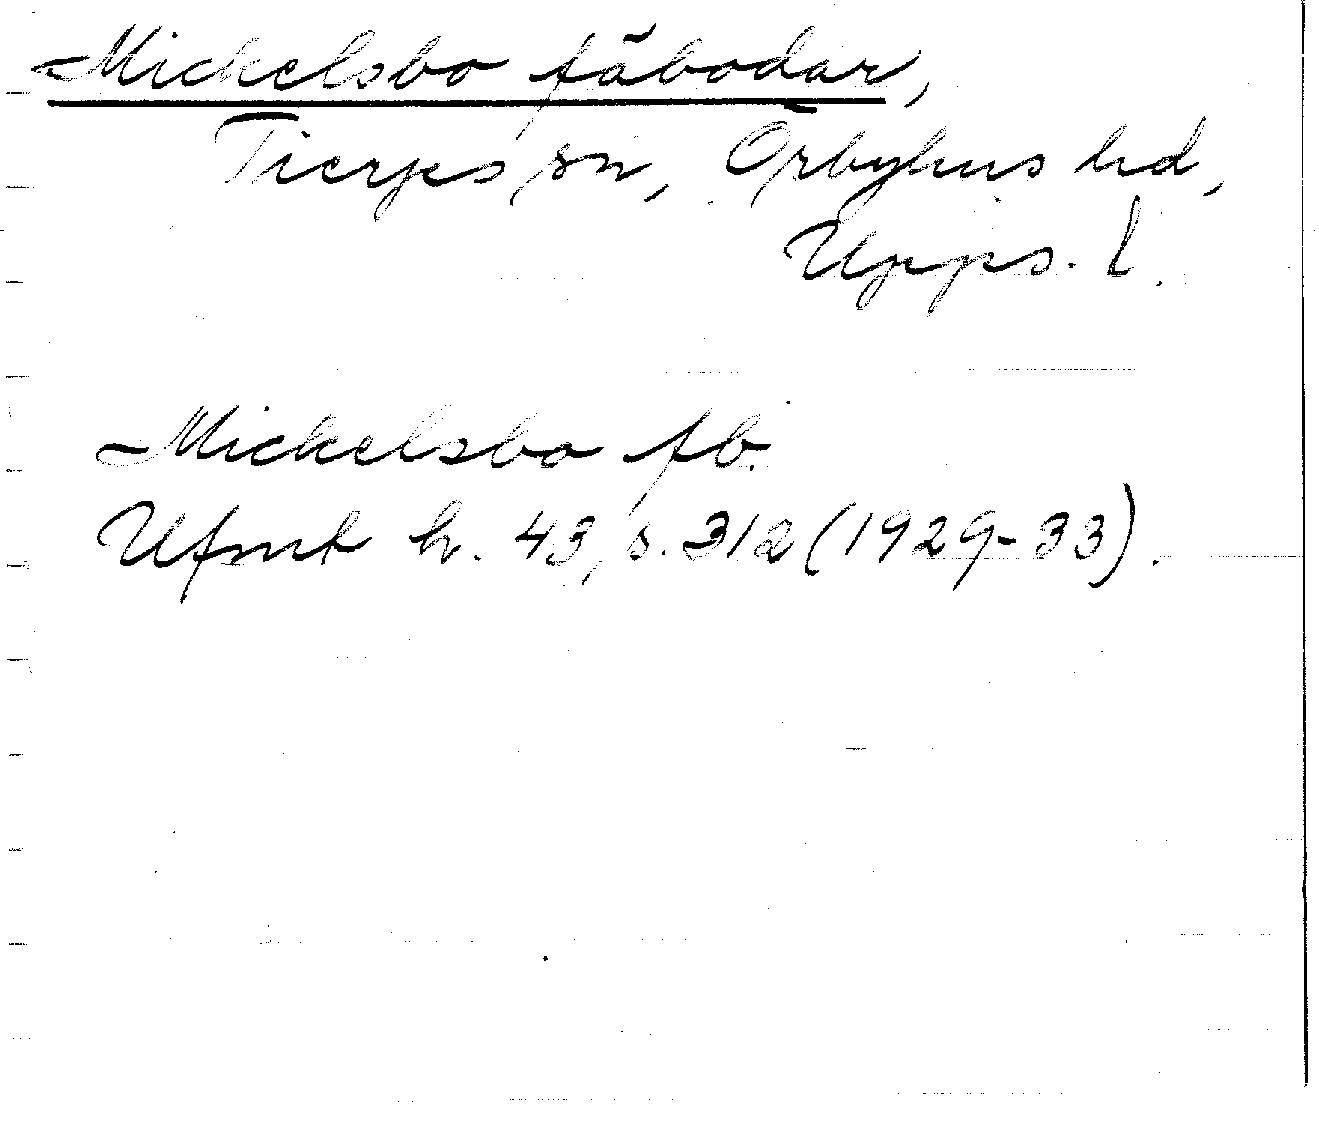 Mickelsbo fäbodar,
Tierps sn, Örbyhus hd,
Upps. l.
Mickelsbo fb.
Ufmt h. 43, s. 312 (1929-33).